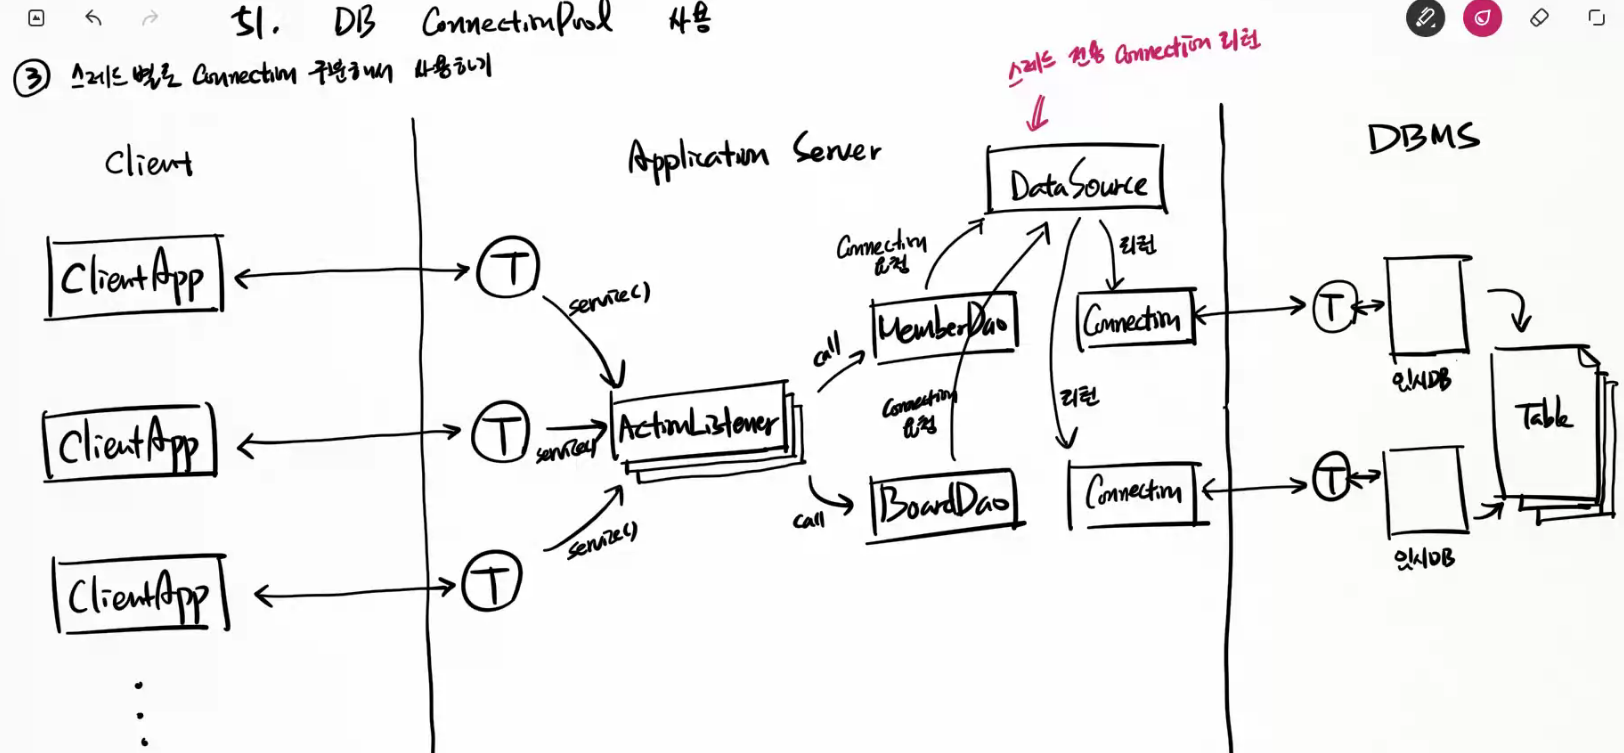 51. DB ConnectionPool 사용
③ 스레드 별로 Connection 구분해서 사용하기
스레드 전용 Connection 리턴
Client
Application Server
DBMS
DataSource
ClientApp
T
service()
Connection 요청
리턴
MemberDao
Connection
T
임시DB
call
ClientApp
T
service()
ActionListener
Connection 요청
리턴
Table
call
BoardDao
Connection
T
임시DB
service()
ClientApp
T